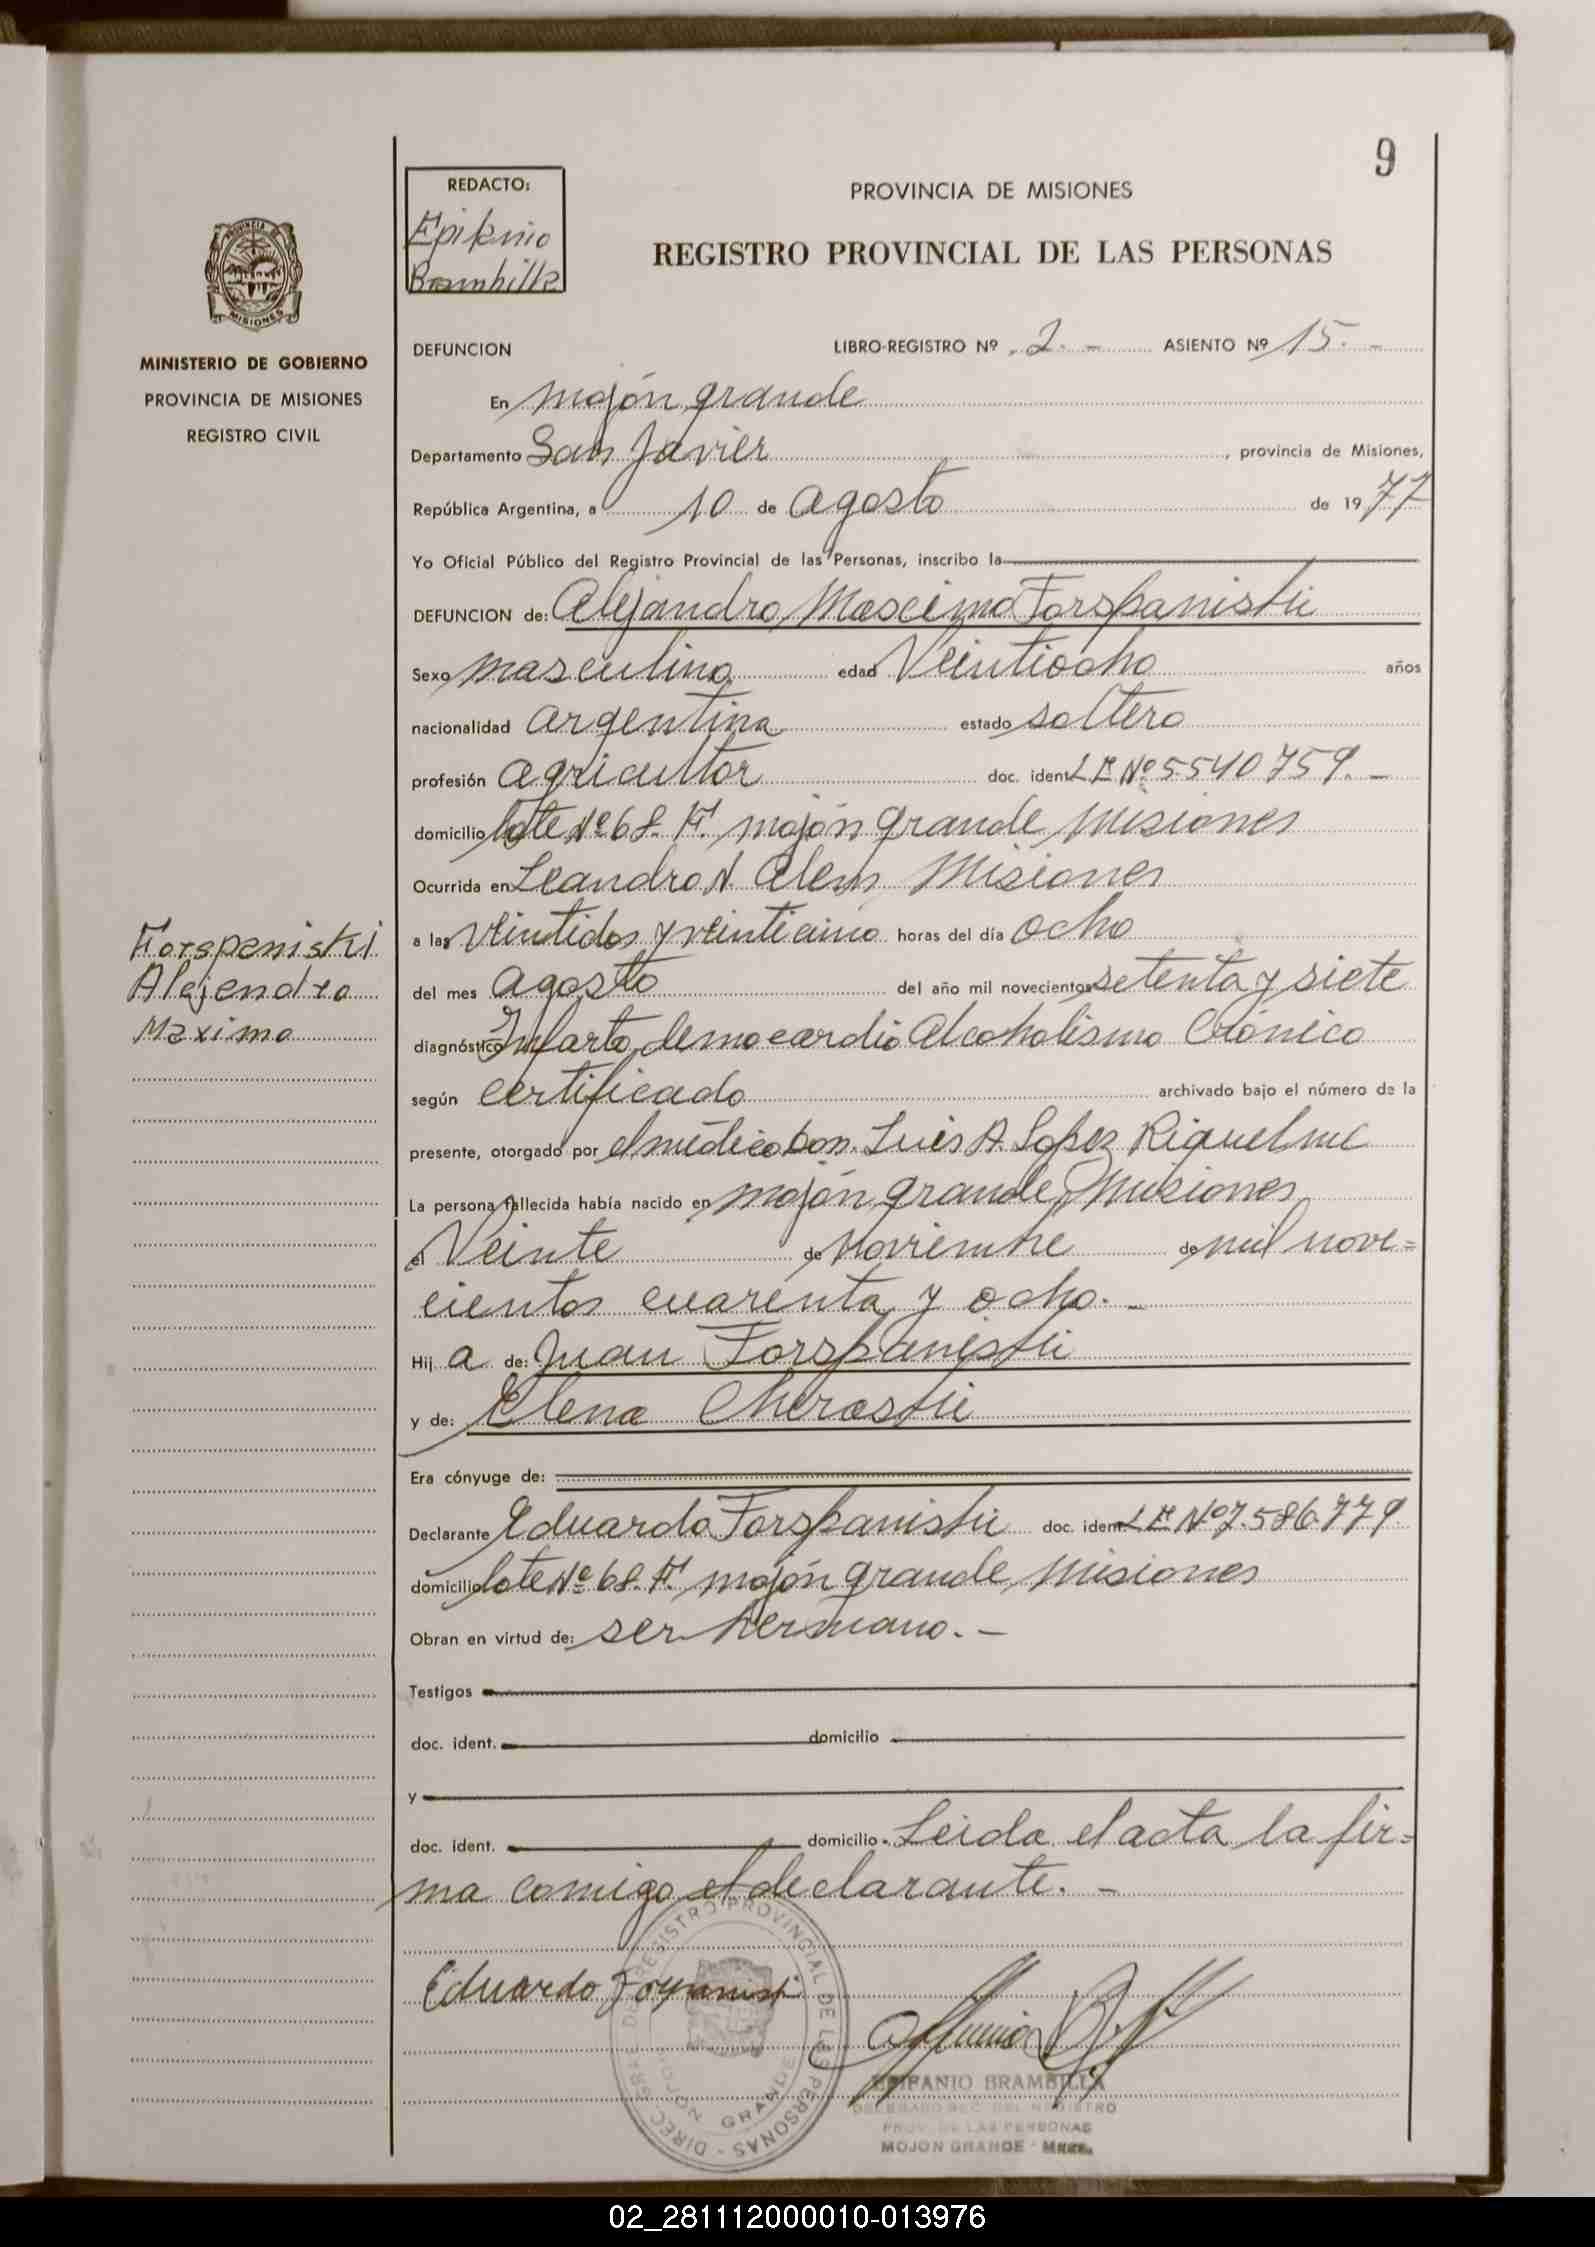 9
REDACTO:
Epifanio
Brambilla
PROVINCIA DE MISIONES
REGISTRO PROVINCIAL DE LAS PERSONAS
PROVINCIA DE
MISIONES
MINISTERIO DE GOBIERNO
PROVINCIA DE MISIONES
REGISTRO CIVIL
DEFUNCION LIBRO-REGISTRO Nº 2.- ASIENTO Nº 15.-
En mojón grande
Departamento San Javier, provincia de Misiones,
República Argentina, a 10 de agosto de 1977
Yo Oficial Público del Registro Provincial de las Personas, inscribo la
DEFUNCION de: Alejandro Mascimo Forspaniski
Sexo masculino edad Veintiocho años
nacionalidad argentina estado soltero
profesión agricultor doc. ident. L E Nº 5540759.-
domicilio lote Nº 68. F. mojón grande Misiones
Ocurrida en Leandro N. Alem Misiones
a las Veintidos y veinticinco horas del día ocho
del mes agosto del año mil novecientos setenta y siete
diagnóstico Infarto democardio Alcoholismo Crónico
según certificado archivado bajo el número de la
presente, otorgado por el médico Don. Luis A. Lopez Riquelme
La persona fallecida había nacido en mojón grande, Misiones
el Veinte de Noviembre de mil nove=
cientos cuarenta y ocho.-
Hij a de: Juan Forspaniski
y de: Elena Cheraski
Era cónyuge de:
Declarante Eduardo Forspaniski doc. ident. L E Nº 7.586.779
domicilio lote Nº 68. F. mojón grande, Misiones
Obran en virtud de: ser hermano.-
Testigos
doc. ident. domicilio
y
doc. ident. domicilio. Leida el acta la fir=
ma comigo el declarante.-
Forspaniski
Alejandro
Maximo
Eduardo Forspaniski
DIREC. GRAL. DE REGISTRO PROVINCIAL DE LAS PERSONAS
MOJON GRANDE
EPIFANIO BRAMBILLA
DELEGADO SEC. DEL REGISTRO
PROV. DE LAS PERSONAS
MOJON GRANDE - Mnes.
02_281112000010-013976